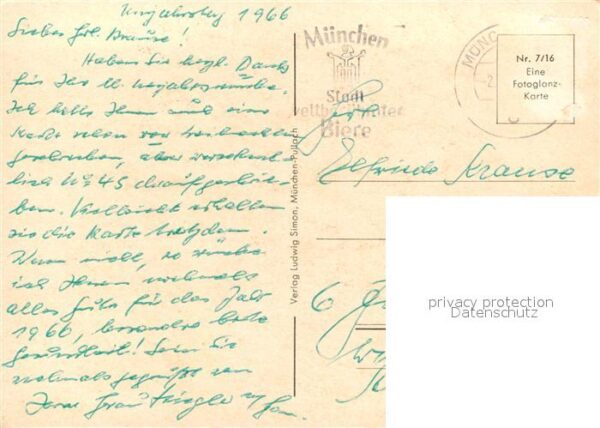 Neujahrstag 1966
Liebes Frl. Krause!
Haben Sie herzl. Dank
für Ihre lb. Neujahrswünsche.
Ich hatte Ihnen auch eine
Karte schon vor Weihnachten
geschrieben, aber versehent-
lich No 45 draufgeschrie-
ben. Vielleicht erhalten
sie die Karte trotzdem.
Wenn nicht, so wünsche
ich Ihnen nochmals
alles Gute für das Jahr
1966, besonders beste
Gesundheit! Seien Sie
nochmals gegrüßt von
Ihrer Frau
Verlag Ludwig Simon, München-Pullach
München
Stadt
weltberühmter
Biere
MÜNC
Nr. 7/16
Eine
Fotoglanz-
Karte
Elfriede Krause
6
privacy protection
Datenschutz